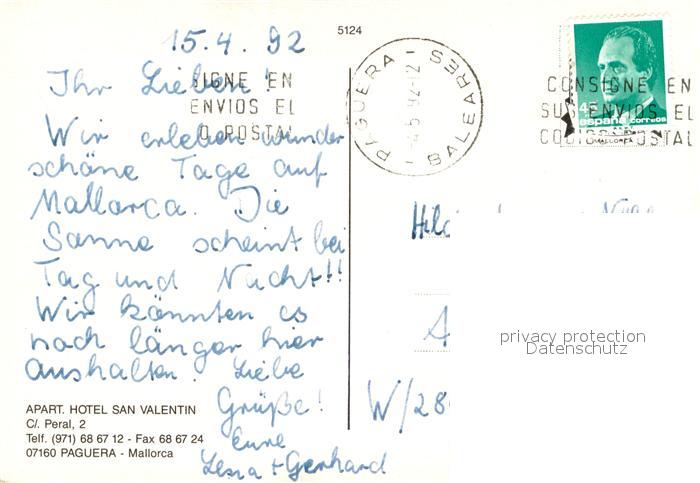 5124
15.4.92
Ihr Lieben!
Wir erleben wunder
schöne Tage auf
Mallorca. Die
Sonne scheint bei
Tag und Nacht!!
Wir könnten es
noch länger hier
aushalten. Liebe
Grüße!
Eure
+ Gerhard
APART. HOTEL SAN VALENTIN
C/. Peral, 2
Telf. (971) 68 67 12 - Fax 68 67 24
07160 PAGUERA - Mallorca
SIGNE EN
ENVIOS EL
O POSTAL
PAGUERA - BALEARES
CONSIGNE EN
SUS ENVIOS EL
CODIGO POSTAL
45
españa correos
MALLORCA
W/28
privacy protection
Datenschutz